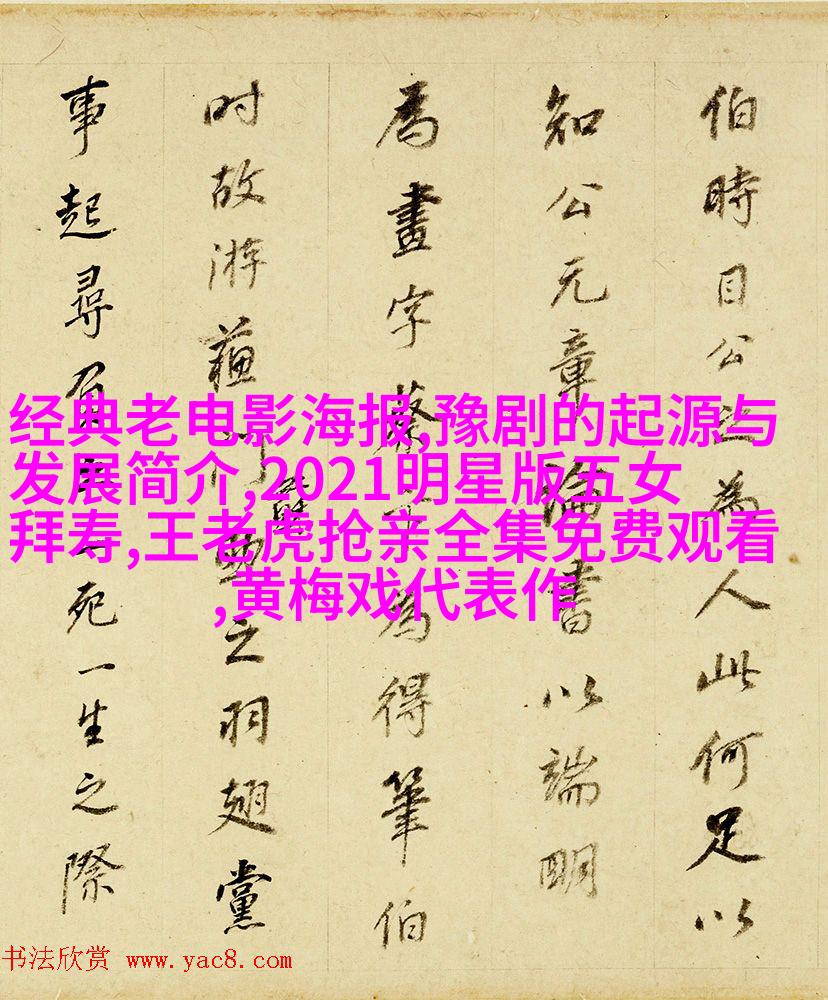 伯時目公為人此何足以
知公元章論書以端明
為畫字蔡為得筆伯
时故游蘓門之羽翅黨
事起尋死一生之際
经典老电影海报,豫剧的起源与
发展简介,2021明星版五女
拜寿,王老虎抢亲全集免费观看
,黄梅戏代表作
书法欣赏 www.yac8.com